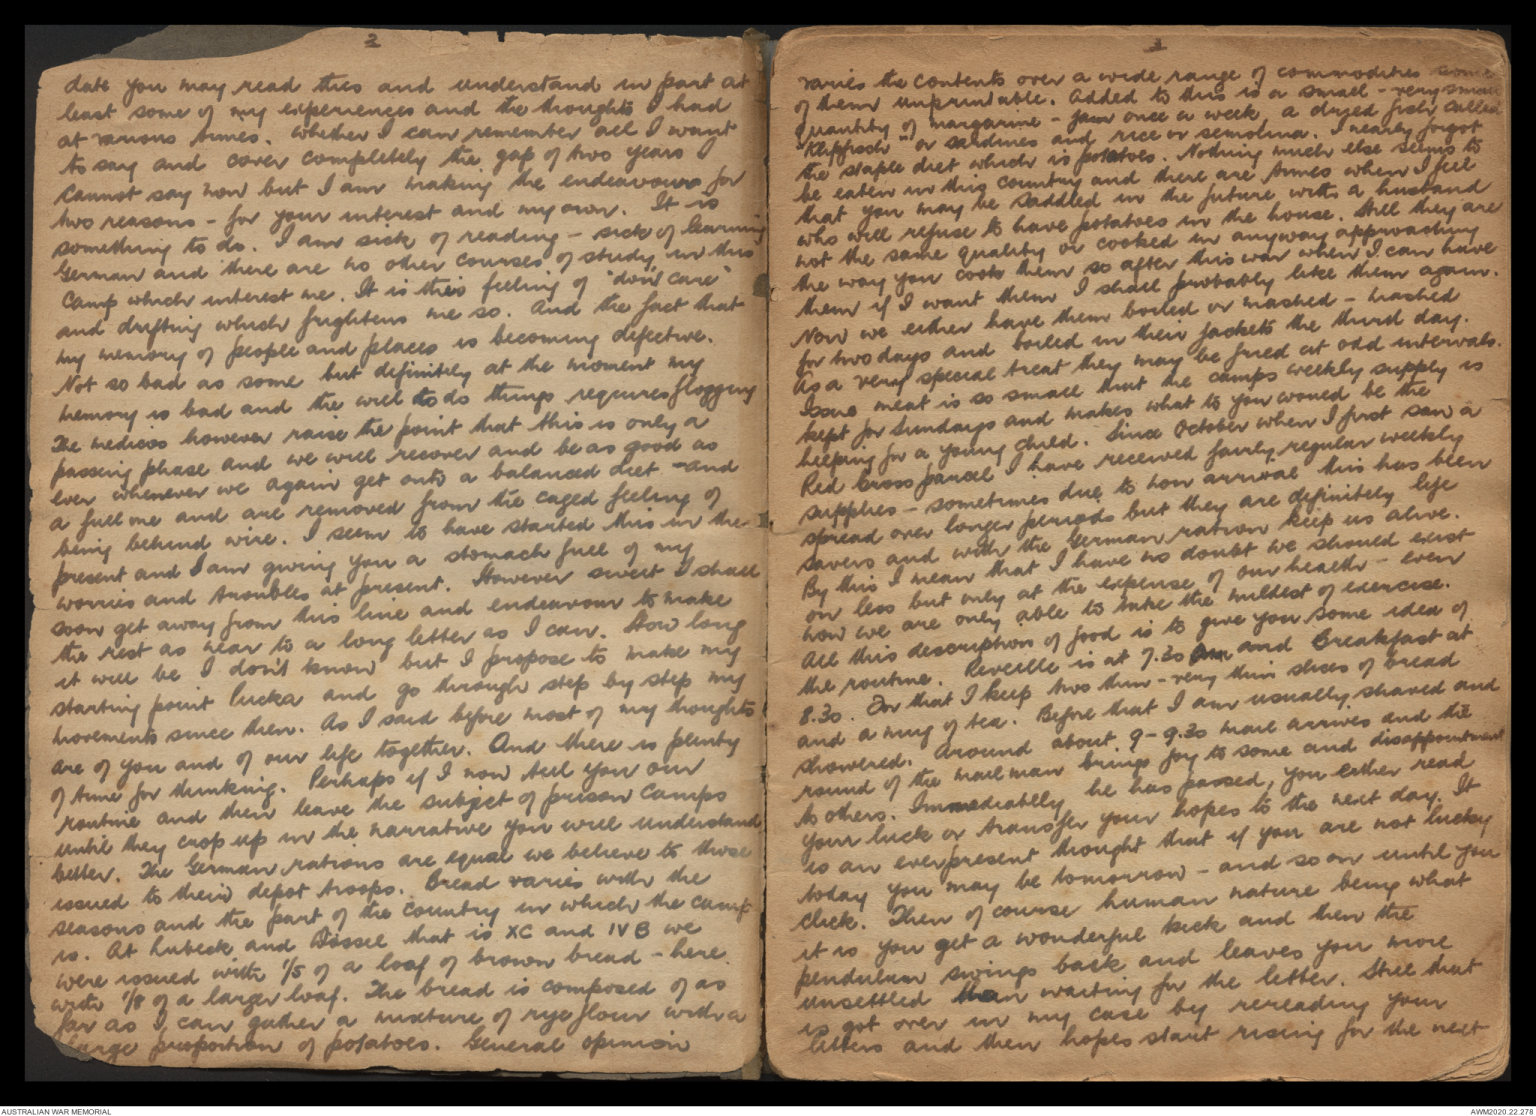 2
date you may read this and understand in part at
least some of my experiences and the thoughts I had
at various times. Whether I can remember all I want
to say and cover completely the gap of two years I
cannot say now but I am making the endeavour for
two reasons - for your interest and my own. It is
something to do. I am sick of reading - sick of learning
German and there are no other courses of study in this
camp which interest me. It is this feeling of "don't care"
and drifting which frightens me so. And the fact that
my memory of people and places is becoming defective.
Not so bad as some but definitely at the moment my
memory is bad and the will to do things requires flogging
The medicos however raise the point that this is only a
passing phase and we will recover and be as good as
ever whenever we again get onto a balanced diet - and
a full one and are removed from the caged feeling of
being behind wire. I seem to have started this in the
present and I am giving you a stomach full of my
worries and troubles at present. However sweet I shall
soon get away from this line and endeavour to make
the rest as near to a long letter as I can. How long
it will be I don't know but I propose to make my
starting point Lucka and go through step by step my
movements since then. As I said before most of my thoughts
are of you and of our life together. And there is plenty
of time for thinking. Perhaps if I now tell you our
routine and then leave the subject of prison camps
until they crop up in the narrative you will understand
better. The German rations are equal we believe to those
issued to their depot troops. Bread varies with the
seasons and the part of the country in which the camp
is. At Lubeck and that is XC and IVB we
were issued with 1/5 of a loaf of brown bread - here
with 1/8 of a larger loaf. The bread is composed of as
far as I can gather a mixture of rye flour with a
large proportion of potatoes. General opinion
3
varies the contents over a wide range of commodities some
of them unprintable. Added to this is a small - very small
quantity of margarine - jam once a week a dryed fish called
"Klipfisch" or sardines and rice or semolina. I nearly forgot
the staple diet which is potatoes. Nothing much else seems to
be eaten in this country and there are times when I feel
that you may be saddled in the future with a husband
who will refuse to have potatoes in the house. Still they are
not the same quality or cooked in anyway approaching
the way you cook them so after this war when I can have
them if I want them I shall probably like them again.
Now we either have them boiled or mashed - mashed
for two days and boiled in their jackets the third day.
As a very special treat they may be fried at odd intervals.
Issue meat is so small that the camps weekly supply is
kept for Sundays and makes what to you would be the
helping for a young child. Since October when I first saw a
Red Cross parcel I have received fairly regular weekly
supplies - sometimes due to non arrival this has been
spread over longer periods but they are definitely life
savers and with the German ration keep us alive.
By this I mean that I have no doubt we should exist
on less but only at the expense of our health - even
now we are only able to take the mildest of exercise.
All this description of food is to give you some idea of
the routine. Reveille is at 7.30 am and Breakfast at
8.30. For that I keep two thin - very thin slices of bread
and a mug of tea. Before that I am usually shaved and
showered. Around about 9 - 9.30 mail arrives and the
round of the mail man brings joy to some and disappointment
to others. Immediately he has passed, you either read
your luck or transfer your hopes to the next day. It
is an everpresent thought that if you are not lucky
today you may be tomorrow - and so on until you
click. Then of course human nature being what
it is you get a wonderful kick and then the
pendulum swings back and leaves you more
unsettled than waiting for the letter. Still that
is got over in my case by rereading your
letters and then hopes start rising for the next
AUSTRALIAN WAR MEMORIAL
AWM2020.22.278